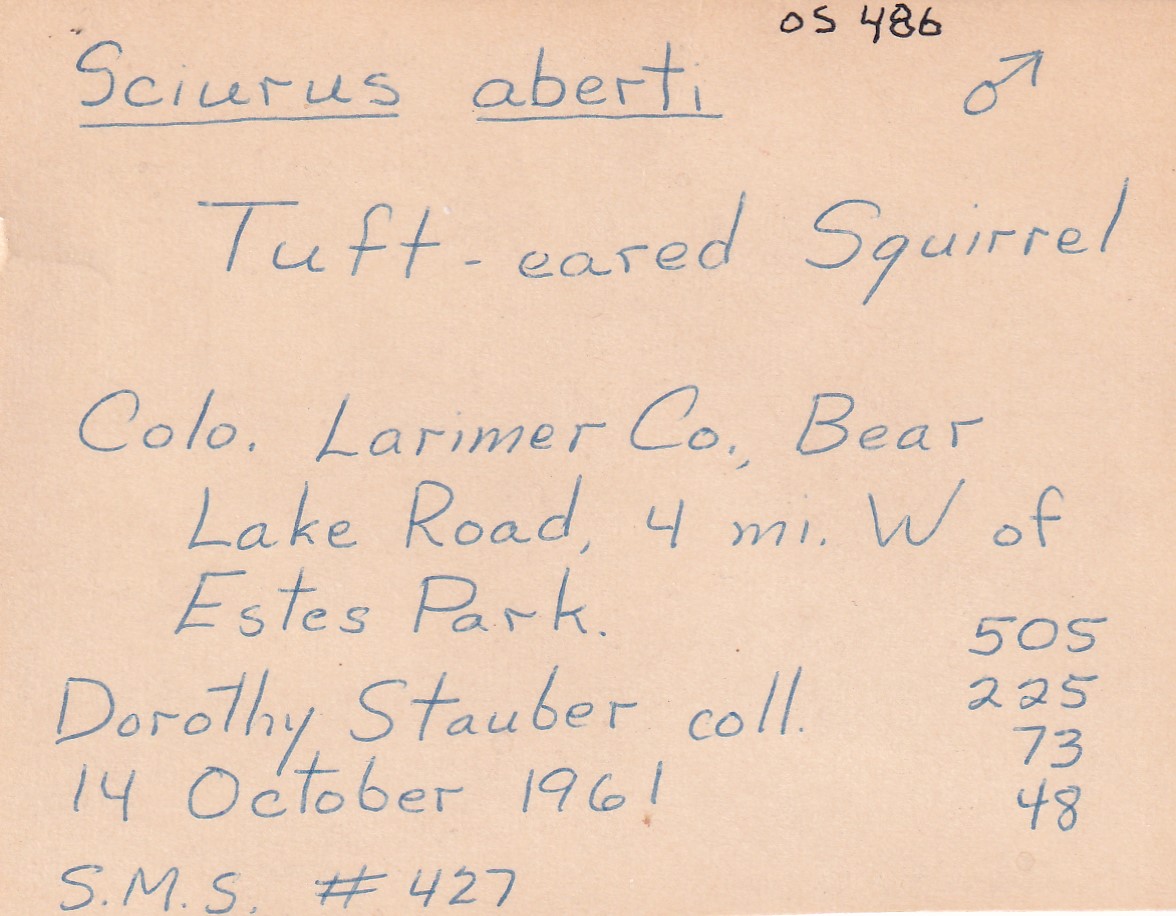 OS 486
Sciurus aberti ♂
Tuft-eared Squirrel
Colo. Larimer Co., Bear
Lake Road, 4 mi. W of
Estes Park.
505
225
73
48
Dorothy Stauber coll.
14 October 1961
S.M.S. # 427